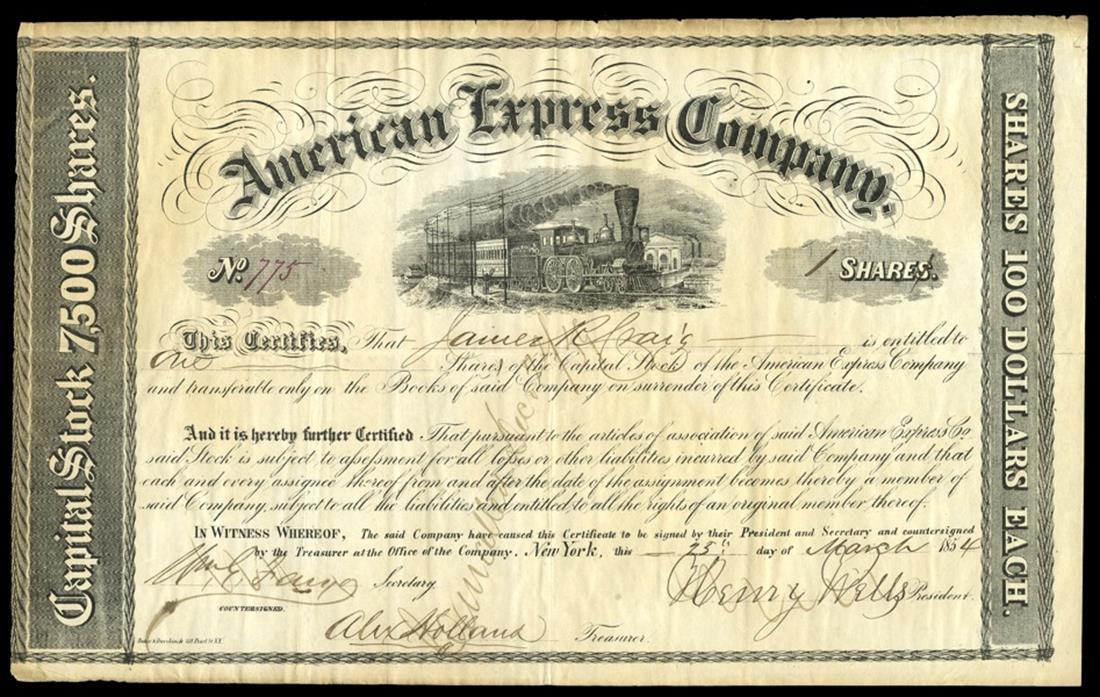 American Express Company.
No. 775
1 SHARES.
This Certifies, That James R. Craig is entitled to
One Shares of the Capital Stock of the American Express Company
and transferable only on the Books of said Company on surrender of this Certificate.
And it is hereby further Certified That pursuant to the articles of association of said American Express Co.
said Stock is subject to assessment for all losses or other liabilities incurred by said Company and that
each and every assignee thereof from and after the date of the assignment becomes thereby a member of
said Company, subject to all the liabilities and entitled to all the rights of an original member thereof.
IN WITNESS WHEREOF, The said Company have caused this Certificate to be signed by their President and Secretary and countersigned
by the Treasurer at the Office of the Company. New York, this 25th day of March 1854
Wm G Fargo Secretary.
Henry Wells President.
COUNTERSIGNED.
Alex Holland Treasurer.
Capital Stock 7,500 Shares.
SHARES 100 DOLLARS EACH.